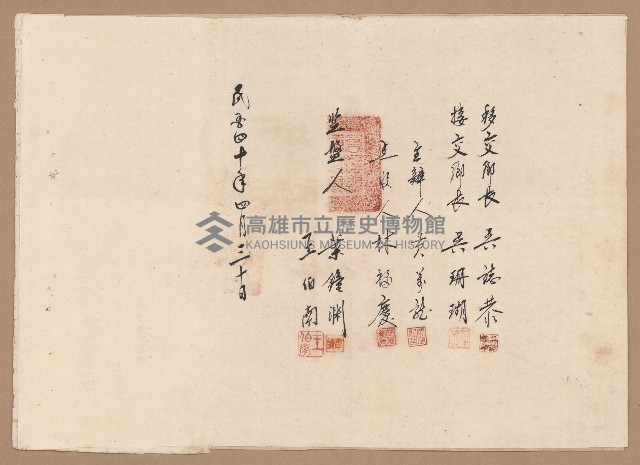 移交鄉長 吳誌恭
接交鄉長 吳珊瑚
主辦人 黃萬龍
人 林 慶
監盤人 葉鐘渊
王伯南
民國四十年四月三十日
高雄市立歷史博物館
KAOHSIUNG MUSEUM OF HISTORY